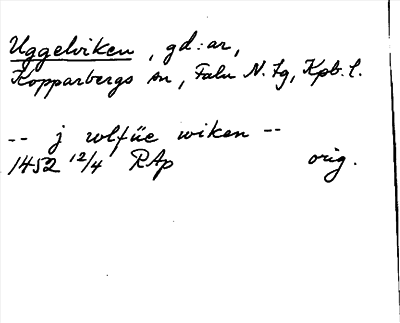 Uggelviken, gd:ar,
Kopparbergs sn, Falu N. tg, Kpb. l.
-- j wlfüe wiken --
1452 12/4 RAp orig.